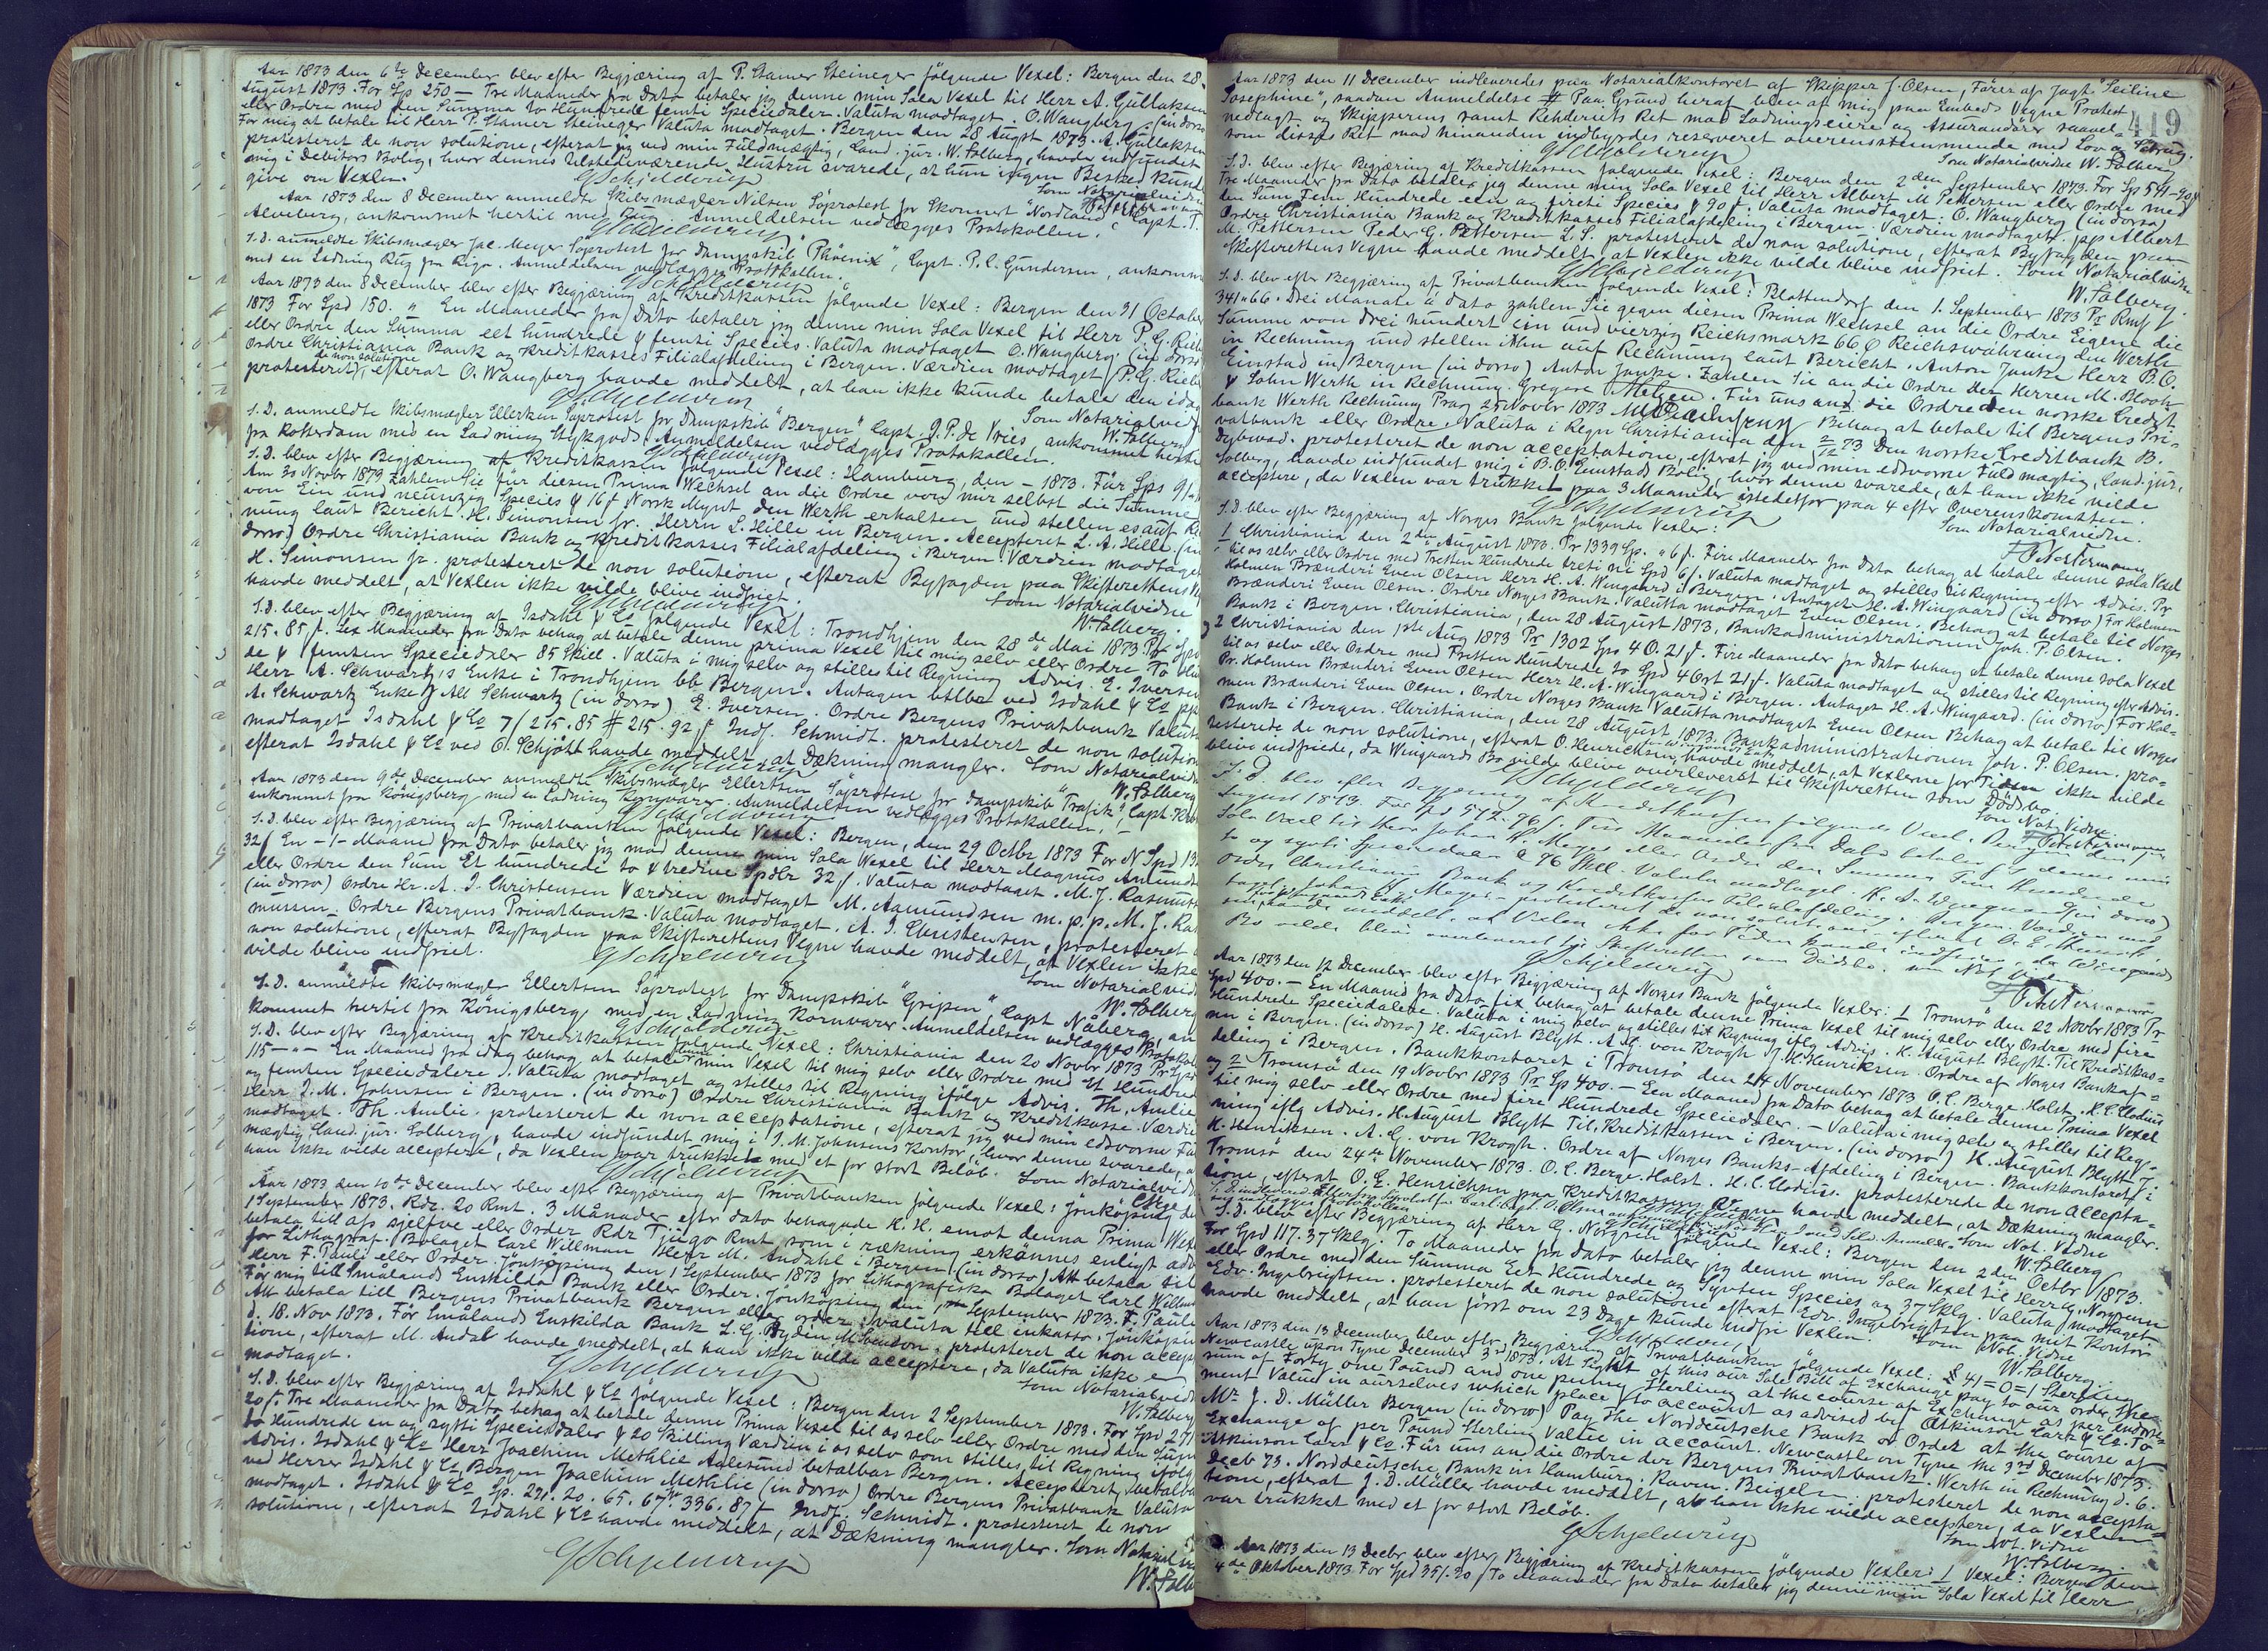 Aar 1873 den 6te December blev efter Begjæring af P. Stamer Steineger følgende Vexel: Bergen den 28
August 1873. For Sp 250 — Tre Maaneder fra Dato betaler jeg denne min Sola Vexel til Herr A. Gullaksen
eller Ordre med den Summa to Hundrede femti Speciedaler. Valuta modtaget. O. Wangberg — (in dorso)
For mig at betale til Herr P. Stamer Steineger Valuta modtaget. Bergen den 28 Augst 1873. A. Gullaksen
protesteret de non solutione, efterat jeg ved min Fuldmægtig, Cand. jur. W. Solberg, havde indfundet
mig i Debitors Bolig, hvor dennes tilstedeværende Hustru svarede, at hun ingen Besked kunde
give om Vexlen.
GSchjelderup
Som Notarialvidne
Aar 1873 den 8 December anmeldte Skibsmægler Nilsen Söprotest for Skonnert "Nordland" Capt. T.
Alveburg, ankommet hertil med Rug. Anmeldelsen vedlægges Protokollen.
GSchjelderup
S.D. anmeldte Skibsmægler Jac. Meyer Söprotest for Dampskib "Phönix", Capt. P. C. Gundersen, ankommet
med en Ladning Rug fra Riga. Anmeldelsen vedlægges Protokollen.
GSchjelderup
Aar 1873 den 8 December blev efter Begjæring af Kreditkassen følgende Vexel: Bergen den 31 October
1873 For Spd 150. " En Maaneder fra Dato betaler jeg denne min Sola Vexel til Herr P. G. Rieber
eller Ordre den Summa eet hundrede & femti Species. Valuta modtaget O. Wangberg. (in dorso)
Ordre Christiania Bank og Kreditkasses Filialafdeling i Bergen. Værdien modtaget P. G. Rieber
de non solutione
protesteret, efterat O. Wangberg havde meddelt, at han ikke kunde betale den idag
GSchjelderup
Som Notarialvidne
W. Solberg
S.D. anmeldte Skibsmægler Ellertsen Söprotest for Dampskib "Bergen" Capt. J. P. de Vries, ankommet hertil
fra Rotterdam med en Ladning Stykgods. Anmeldelsen vedlægges Protokollen.
GSchjelderup
S.D. blev efter Begjæring af Kreditkassen følgende Vexel: Hamburg, den — 1873. Für Sps 91
Am 30 Novbr 1873 zahlen Sie für diesen Prima Wechsel an die Ordre von mir selbst die Summe
von Ein und neunzig Species & 16 ß Norsk Mynt den Werth erhalten und stellen es auf Rech
nung laut Bericht. H. Simonsen jr. Herrn L. Hille in Bergen. Accepteret L. A. Hille. (in
dorso) Ordre Christiania Bank og Kreditkasses Filialafdeling i Bergen. Værdien modtaget
H. Simonsen jr. protesteret de non solutione, efterat Byfogden paa Skifterettens V
havde meddelt, at Vexlen ikke vilde blive indfriet.
GSchjelderup
Som Notarialvidne
W. Solberg.
S.D. blev efter Begjæring af Isdahl & Co følgende Vexel: Trondhjem den 28de Mai 1873 Pr Spd
215. 85 ß. Sex Maaneder fra Dato behag at betale denne prima Vexel til mig selv eller Ordre To Hun
de & femten Speciedaler 85 Skill. Valuta i mig selv og stilles til Regning Advis. E. Iversen
Herr A. Schwartz's Enke i Trondhjem bb Bergen. Antagen btlbr ved Isdahl & Co pp
A. Schwartz Enke Alb Schwartz (in dorso) E. Iversen. Ordre Bergens Privatbank Valuta
modtaget Isdahl & Co 7/ 215. 85 # 215. 92 ß Indf. Schmidt. protesteret de non solutione
efterat Isdahl & Co ved O. Schjött havde meddelt, at Dækning mangler. Som Notarialvidne
GSchjelderup
W. Solberg
Aar 1873 den 9de December anmeldte Skibsmægler Ellertsen Söprotest for Dampskib "Trafik", Capt.
ankommet fra Königsberg med en Ladning Kornvarer. Anmeldelsen vedlægges Protokollen.
GSchjelderup
S.D. blev efter Begjæring af Privatbanken følgende Vexel: Bergen, den 29 Octbr 1873 For N Spd 13
32 ß En — 1 — Maaned fra Dato betaler jeg mod denne min Sola Wexel til Herr Magnus Amunds
eller Ordre den Sum Et hundrede to & tredive Spdlr 32 ß. Valuta modtaget. M. J. Rasmus
(in dorso) Ordre Hr. A. J. Christensen Værdien modtaget M. Aamundsen m. p. p. M. J. Ras
mussen. Ordre Bergens Privatbank. Valuta modtaget. A. J. Christensen, protesteret
non solutione, efterat Byfogden paa Skifterettens Vegne havde meddelt, at Vexlen ikke
vilde blive indfriet.
GSchjelderup
Som Notarialvidne
W. Solberg
S.D. anmeldte Skibsmægler Ellertsen Söprotest for Dampskib "Gripen", Capt Nåberg, an
kommet hertil fra Königsberg med en Ladning Kornvarer. Anmeldelsen vedlægges Protokol
GSchjelderup
S.D. blev efter Begjæring af Kreditkassen følgende Vexel: Christiania den 20 Novbr 1873 Pr Spd
115 — " — En Maaned fra idag behag at betale denne min Vexel til mig selv eller Ordre med Et Hundrede
og femten Speciedalere. Valuta modtaget og stilles til Regning ifölge Advis. Th. Amlie
Herr J. M. Johnsen i Bergen. (in dorso) Ordre Christiania Bank og Kreditkasse. Værdien
modtaget. Th. Amlie. protesteret de non acceptatione, efterat jeg ved min edsvorne Fuld
mægtig, Cand. jur. Solberg, havde indfundet mig i J. M. Johnsens Kontor, hvor denne svarede, at
han ikke vilde acceptere, da Vexlen var trukken med et for stort Beløb.
GSchjelderup
Som Notarialvidne
Aar 1873 den 10de December blev efter Begjæring af Privatbanken følgende Vexel: Jönköping den
1 September 1873. Rdr. 20 Rmt. 3 Månader efter dato behagade H. H. emot denna Prima Wex
betala till oss sjelfve eller Order Rdr Tjugo Rmt som i räkning erkännes enligt advis
for Lithograf. Bolaget Carl Willman Herr M. Andahl i Bergen (in dorso) Att betala til
Herr F. Pauli eller Order. Jönköping den 1 September 1873 for Lithografiska Bolaget Carl Willman
För mig till Smålands Enskilda Bank eller Order. Jönköping den 1 September 1873. F. Pauli
Att betala till Bergens Privatbank Bergen eller order valuta till inkasso. Jönköping
d. 18. Nov 1873. För Smålands Enskilda Bank L. G. Rydén M. protesteret de non accepta
tione, efterat M. Andal havde meddelt, at han ikke vilde acceptere, da Valuta ikke er
modtaget.
GSchjelderup
Som Notarialvidne
W. Solberg
S.D. blev efter Begjæring af Isdahl & Co følgende Vexel: Bergen den 2 September 1873. For Spd 271
20 ß. Tre Maaneder fra Dato behag at betale denne Prima Vexel til os selv eller Ordre med den Sum
to Hundrede en og sytti Speciedaler & 20 Skilling Værdien i os selv som stilles til Regning ifølge
Advis. Isdahl & Co Herr Joachim Methlie Aalesund betalbar Bergen. Accepteret, betalbar
ved Herrer Isdahl & Co, Bergen Joachim Methlie (in dorso) Ordre Bergens Privatbank Valuta
modtaget. Isdahl & Co Sp. 271. 20. 65. 67 336. 87 ß Indf. Schmidt. protesteret de non
solutione, efterat Isdahl & Co havde meddelt, at Dækning mangler. Som Notarialvidne
GSchjelderup
W. Solb
419
Aar 1873 den 11 December indleveredes paa Notarialkontoret af Skipper J. Olsen, Förer af Jagt "Seiline
Josephine", saadan Anmeldelse # Paa Grund heraf blev af mig paa Embeds Vegne Protest
nedlagt og Skipperens samt Rehderiets Ret mod Ladningseiere og Assurandörer saavel
som disses Ret mod hinanden indbyrdes reserveret overensstemmende med Lov og Sedvig.
GSchjelderup
Som Notarialvidne W. Solberg
S.D. blev efter Begjæring af Kreditkassen følgende Vexel: Bergen den 2den September 1873. For Sp 541–90 ß
Tre Maaneder fra Dato betaler jeg denne min Sola Vexel til Herr Albert M. Pettersen eller Ordre med
den Sum Fem Hundrede een og fireti Species & 90 ß. Valuta modtaget: O. Wangberg (in dorso)
Ordre Christiania Bank og Kreditkasses Filialafdeling i Bergen. Værdien modtaget. pp Albert
M. Pettersen Peder G. Pettersen L. S. protesteret de non solutione, efterat Byfogden paa
Skifterettens Vegne havde meddelt, at Vexlen ikke vilde blive indfriet. Som Notarialvidne
GSchjelderup
W. Solberg.
S.D. blev efter Begjæring af Privatbanken følgende Vexel: Blottendorf den 1. September 1873 Pr Rmf
341 " 66. Drei Manate a dato zahlen Sie gegen diesen Prima Wechsel an die Ordre Eigene die
Summe von drei hundert ein und vierzig Reichsmark 66 Reichswährung den Werth
in Rechnung und stellen Ihn auf Rechnung laut Bericht. Anton Janke Herr B. O.
Einstad in Bergen (in dorso) Anton Janke. Zahlen Sie an die Ordre der Herren M. Bloch
& Sohn Werth in Rechnung. Gregere Melzen. Für uns and die Ordre den norske Credit-
bank Werth Rechnung Prag 25 Novbr 1873 Behag at betale til Bergens Pri-
vatbank eller Ordre Valuta i Regn Christiania den 2/12 73 Den norske Creditbank B.
Dybwad. protesteret de non acceptatione, efterat jeg ved min edsvorne Fuldmægtig, Cand. jur.
Solberg, havde indfundet mig i B. O. Eenstads Bolig, hvor denne svarede, at han ikke vilde
acceptere, da Vexlen var trukket paa 3 Maaneder istedetfor paa 4 efter Overenskomsten.
GSchjelderup
Som Notarialvidne.
S.D. blev efter Begjæring af Norges Bank følgende Vexler:
1 Christiania den 2den August 1873. Pr 1339 Sp. " 6 ß. Fire Maaneder fra Dato behag at betale denne Sola Vexel
til os selv eller Ordre med Tretten Hundrede treti ni Spd 6 ß. Valuta modtaget og stilles til Regning efter Advis. Pr
Holmen Brænderi Even Olsen Herr H. A. Wingaard i Bergen. Antaget H. A. Wingaard (in dorso) For Holmen
Brænderi Even Olsen. Ordre Norges Bank. Valuta modtaget Even Olsen. Behag at betale til Norges
Bank i Bergen. Christiania, den 28 August 1873. Bankadministrationen Joh. P. Olsen.
2 Christiania den 1ste Aug 1873 Pr 1302 Sps 4 O. 21 ß. Fire Maaneder fra Dato behag at betale denne Sola Vexel
til os selv eller Ordre med Tretten Hundrede to Spd 4 Ort 21 ß. Valuta modtaget og stilles til Regning efter Advis.
Pr. Holmen Brænderi Even Olsen Herr H. A. Wingaard i Bergen. Antaget H. A. Wingaard. (in dorso) For Hol-
men Brænderi Even Olsen. Ordre Norges Bank Valuta modtaget Even Olsen Behag at betale til Norges
Bank i Bergen. Christiania, den 28 August 1873. Bankadministrationen Joh. P. Olsen. pro-
testerede de non solutione, efterat O. Henrichsen havde meddelt, at Vexlerne for Tiden ikke vilde
blive indfriede, da Wingaards Bo vilde blive overleveret til Skifteretten som Dödsbo.
GSchjelderup
Som Not. Vidne
S.D. blev efter Begjæring af Kreditkassen følgende Vexel. Bergen den
August 1873. For Spd 572. 76 ß. Tre Maaneder fra Dato betaler jeg denne min
Sola Vexel til Herr Johan K. Meyer eller Ordre den Summa Fem Hundrede
to og sytti Speciedaler & 76 Skill. Valuta modtaget. H. A. Wingaard (in dorso)
Ordre Christiania Bank og Kreditkasses Filialafdeling i Bergen. Værdien mod
taget Johan K. Meyer — protesteret de non solutione, efterat O. E. Henrich
sen havde meddelt, at Vexlen ikke for Tiden kunde indfries, da Wingaards
Bo vilde blive overleveret til Skifteretten som Dødsbo. som Not Vidne
GSchjelderup
Aar 1873 den 12 December blev efter Begjæring af Norges Bank følgende Vexler: 1 Tromsö den 22 Novbr 1873 Pr
Spd 400. — En Maaned fra Dato fix behag at betale denne Prima Vexel til mig selv eller Ordre med fire
Hundrede Speciedalere. Valuta i mig selv og stilles til Regning iflg Advis. H. August Blytt. Til Kreditkas-
sen i Bergen. (in dorso) H. August Blytt. A. G. von Krogh. J. K. Henriksen. Ordre af Norges Banks Af-
deling i Bergen. Bankkontoret i Tromsö den 24 November 1873 O. C. Berge. Holst. H. C. Clodius
og 2 Tromsö den 19 Novbr 1873 Pr Sp 400. — Een Maaned fra Dato behag at betale denne Prima Vexel
til mig selv eller Ordre med fire Hundrede Speciedaler. — Valuta i mig selv og stilles til Reg-
ning iflg Advis. H. August Blytt Til Kreditkassen i Bergen. (in dorso) H. August Blytt J.
K. Henriksen. A. G. von Krogh. Ordre af Norges Banks-Afdeling i Bergen. Bankkontoret i
Tromsö den 24de November 1873. O. C. Berge. Holst. H. C. Clodius. protesterede de non accepta-
tione, efterat O. E. Henrichsen paa Kreditkassens Vegne havde meddelt, at Dækning mangler.
GSchjelderup
Som Not. Vidne
W. Solberg
S.D. blev efter Begjæring af Herr G. Norgrenn følgende Vexel: Bergen den 2den Octbr 1873.
For Spd 117. 37 Sklg. To Maaneder fra dato betaler jeg denne min Sola Vexel til Herr G. Norgrenn
eller Ordre med den Summa Eet Hundrede og Sytten Species og 37 Sklg. Valuta modtaget
Edv. Ingebrigtsen. protesteret de non solutione efterat Edv. Ingebrigtsen paa mit Kontor
havde meddelt, at han först om 23 Dage kunde indfri Vexlen.
GSchjelderup
Som Not. Vidne
W. Solberg.
Aar 1873 den 13 December blev efter Begjæring af Privatbanken følgende Vexel: £ 41=0=1 Sterling
Newcastle upon Tyne December 3rd 1873. At Sight of this our Sole Bill of Exchange pay to our order the
sum of Forty one Pounds and one penny Sterling at the course of Exchange as per endorse-
ment Value in ourselves which place to account as advised by Atkinson Carr & Co. To
Mr J. D. Müller Bergen (in dorso) Pay the Norddeutsche Bank or Order at the course of
Exchange of per Pound Sterling Value in account. Newcastle on Tyne the 3rd December 1873.
Atkinson Carr & Co. Für uns an die Ordre der Bergens Privatbank. Werth in Rechnung d. 6.
Decb 73. Norddeutsche Bank in Hamburg. Raven. Beigel. protesteret de non accepta-
tione, efterat J. D. Müller havde meddelt, at han ikke vilde acceptere, da Vexlen
var trukket med et for stort Beløb.
GSchjelderup
Som Not. Vidne
W. Solberg
Aar 1873 den 13 Decbr blev efter Begjæring af Kreditkassen følgende Vexler: 1 Vexel: Bergen den
4de Oktober 1873 For Spd 351. 20 To Maaneder fra Dato betaler jeg denne min Sola Vexel til Herr